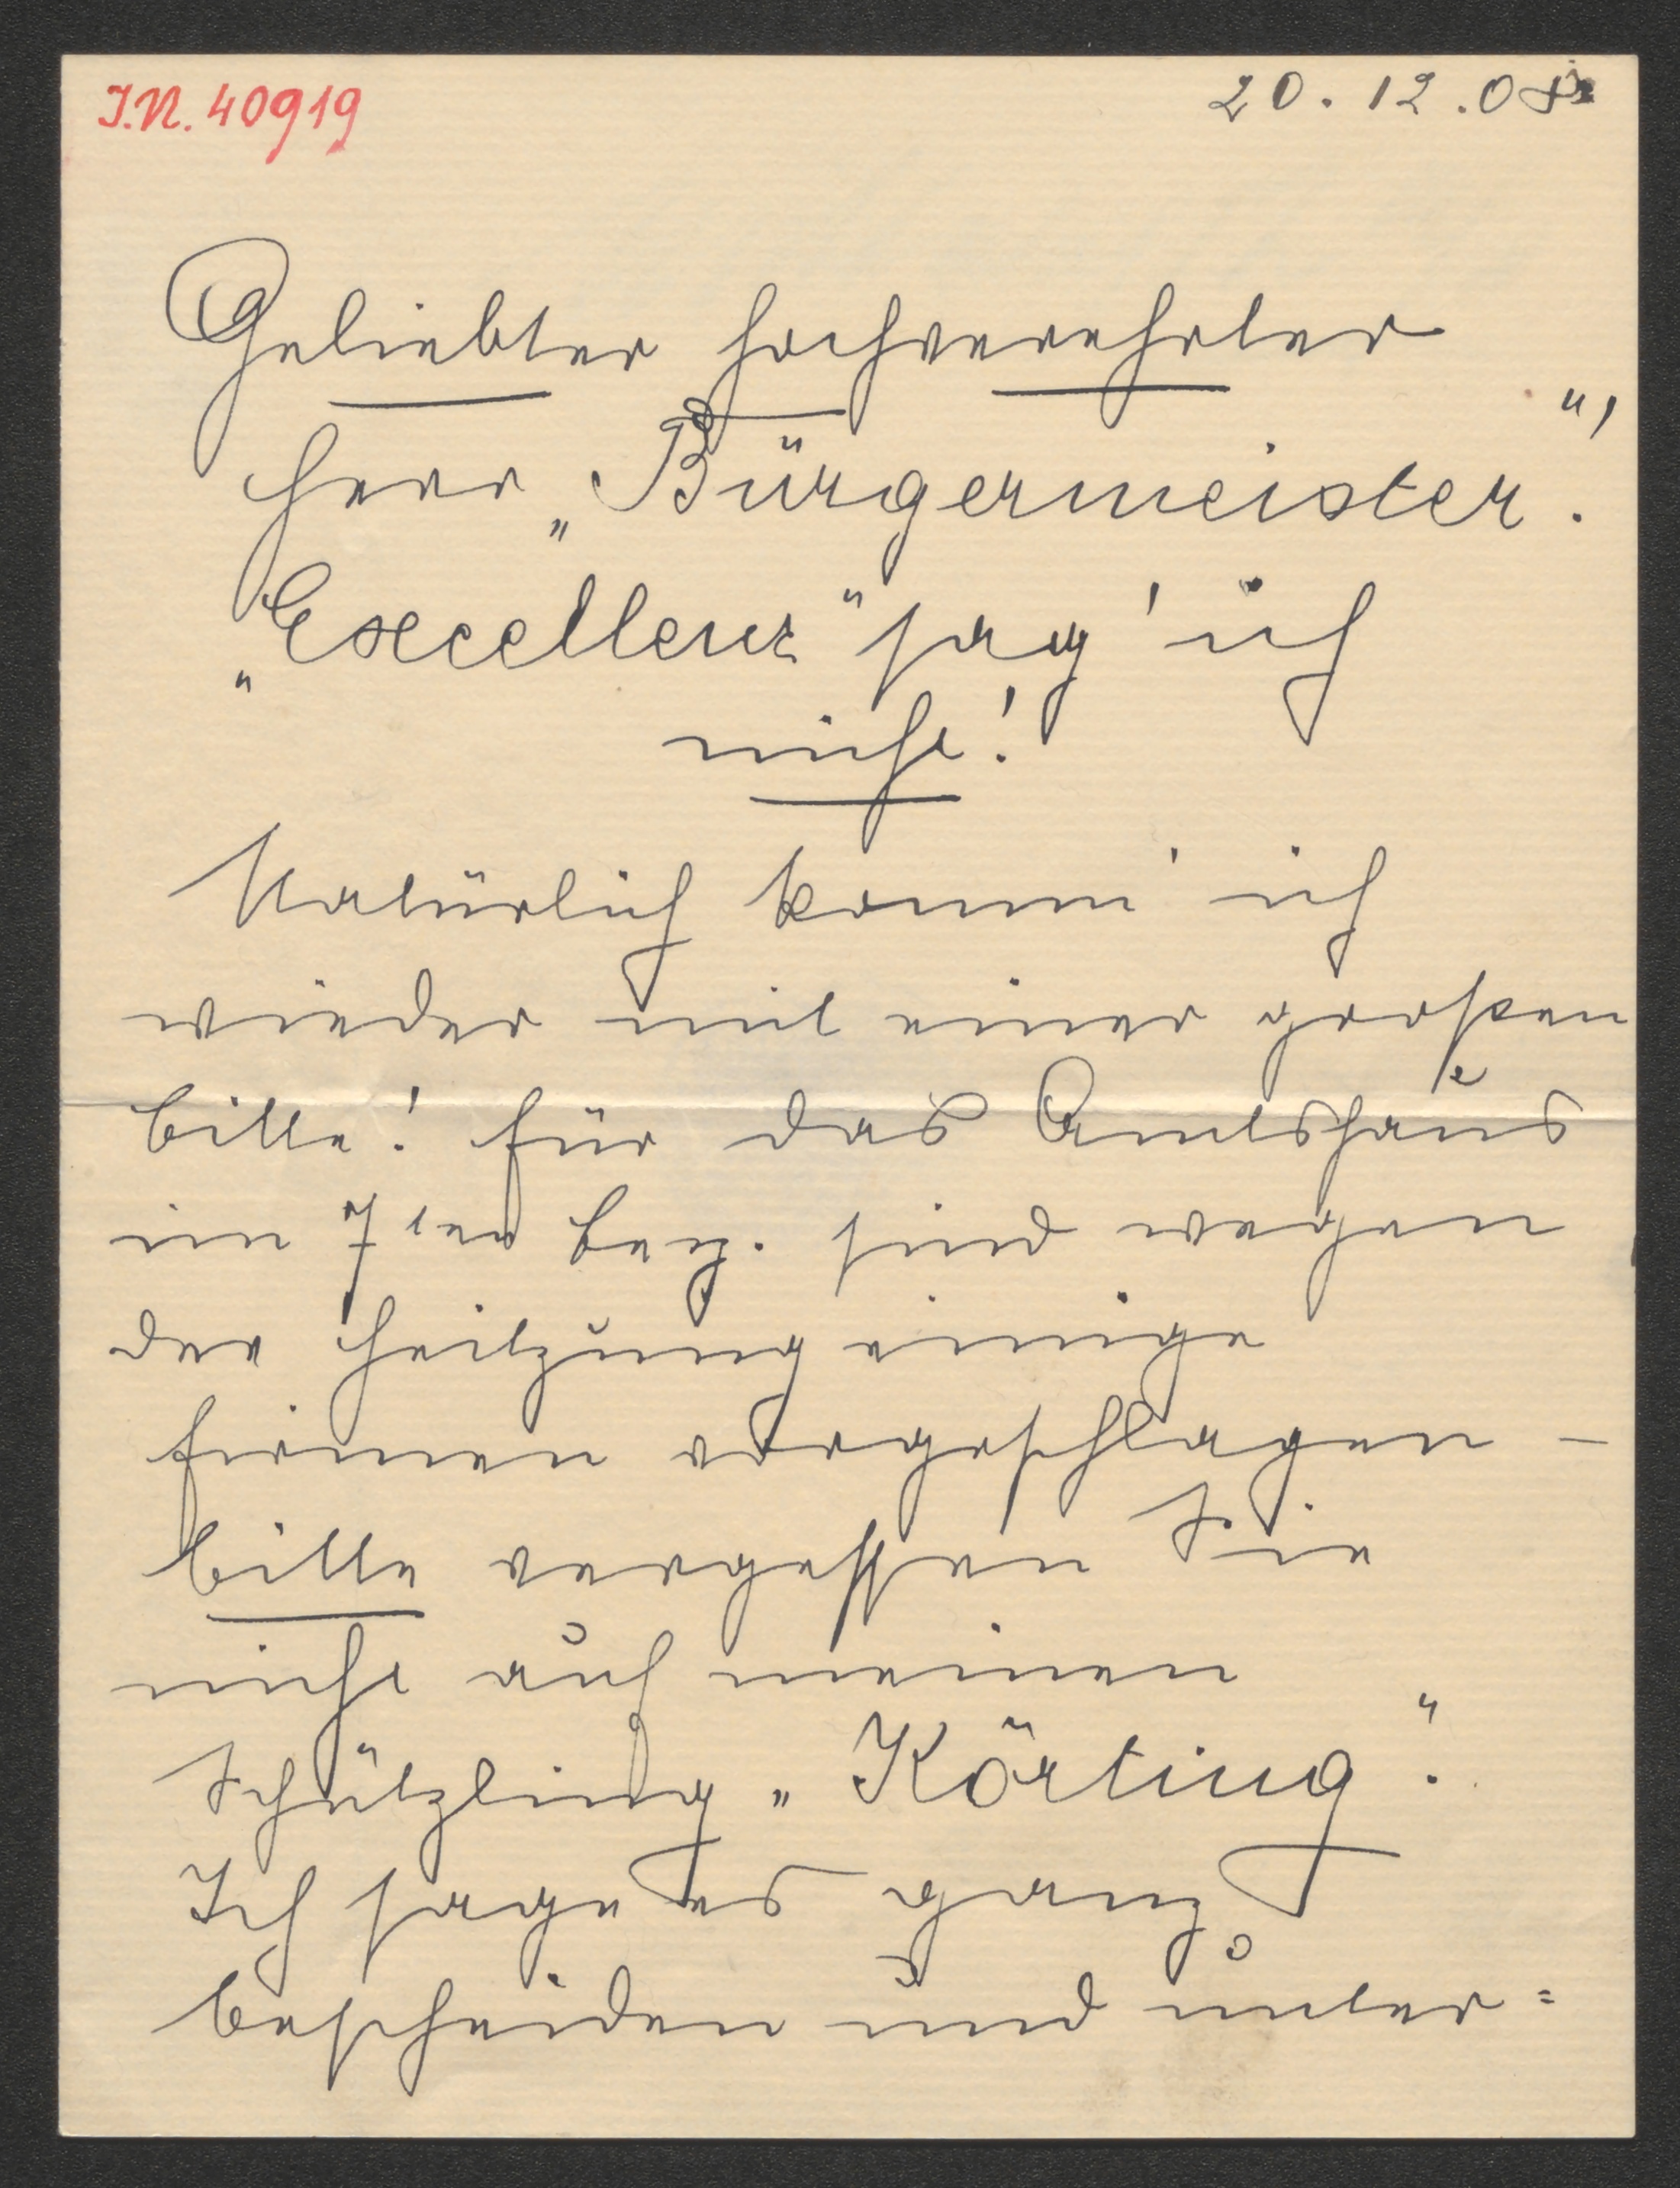 I.N. 40919
20.12.08
Geliebter hochverehrter
Herr „Bürgermeister“,
„Excellenz“ sag' ich
nicht!
Natürlich komm' ich
wieder mit einer großen
Bitte! Für das Amtshaus
im 7ten Bez. sind wegen
der Heitzung einige
Firmen vorgeschlagen –
bitte vergessen Sie
nicht auf meinen
Schützling „Körting“.
Ich sage es ganz
bescheiden und unter=